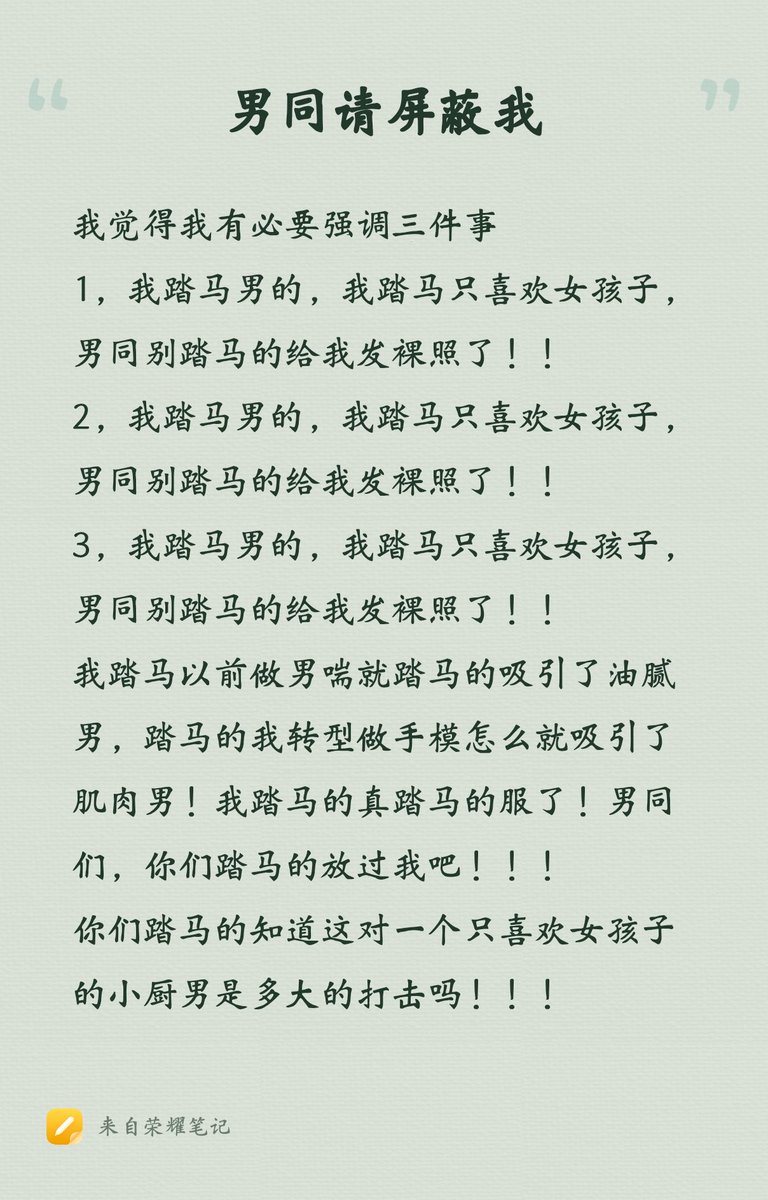 “ ”
男同请屏蔽我
我觉得我有必要强调三件事
1，我踏马男的，我踏马只喜欢女孩子，
男同别踏马的给我发裸照了！！
2，我踏马男的，我踏马只喜欢女孩子，
男同别踏马的给我发裸照了！！
3，我踏马男的，我踏马只喜欢女孩子，
男同别踏马的给我发裸照了！！
我踏马以前做男喘就踏马的吸引了油腻
男，踏马的我转型做手模怎么就吸引了
肌肉男！我踏马的真踏马的服了！男同
们，你们踏马的放过我吧！！！
你们踏马的知道这对一个只喜欢女孩子
的小厨男是多大的打击吗！！！
来自荣耀笔记